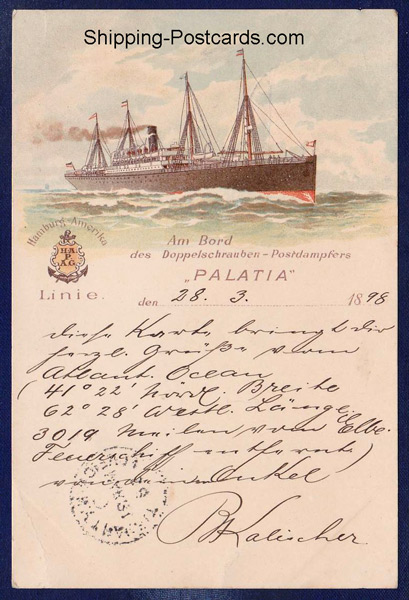 Shipping-Postcards.com
Hamburg-Amerika
HA.
P.
A.G.
Linie.
Am Bord
des Doppelschrauben-Postdampfers
„PALATIA"
den 28. 3. 1898
diese Karte bringt dir
herzl. Grüße vom
Atlant. Ocean
(41° 22' Nördl. Breite
62° 28' Westl. Länge
3019 Meilen vom Elbe-
Feuerschiff entfernt)
von deinem Onkel
Kalischer